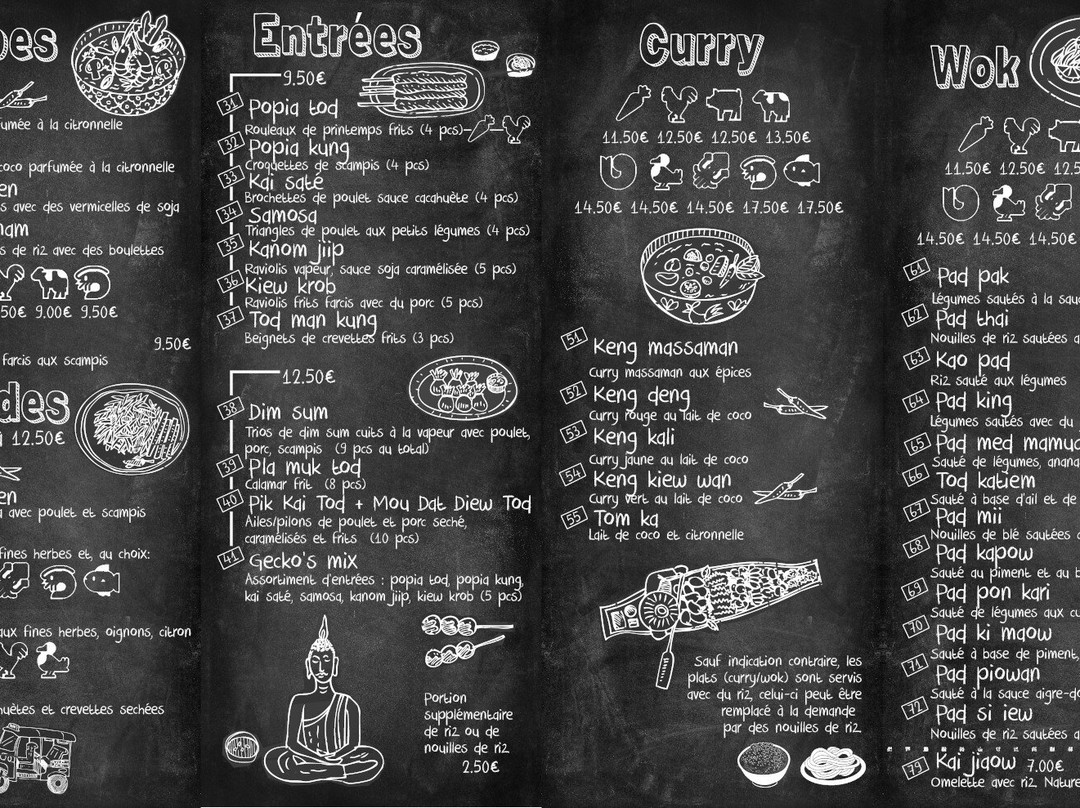 pes
fumée à la citronnelle
coco parfumée à la citronnelle
en
s avec des vermicelles de soja
nam
s de riz avec des boulettes
50€ 9.00€ 9.50€
9.50€
farcis aux scampis
des
à 12.50€
en
avec poulet et scampis
fines herbes et, au choix:
aux fines herbes, oignons, citron
huètes et crevettes sechées
Entrées
9.50€
31 Popia tod
Rouleaux de printemps frits (4 pcs)
32 Popia kung
Croquettes de scampis (4 pcs)
33 Kai saté
Brochettes de poulet sauce cacahuète (4 pcs)
34 Samosa
Triangles de poulet aux petits légumes (4 pcs)
35 Kanom jiip
Raviolis vapeur, sauce soja caramélisée (5 pcs)
36 Kiew krob
Raviolis frits farcis avec du porc (5 pcs)
37 Tod man kung
Beignets de crevettes frits (3 pcs)
12.50€
38 Dim sum
Trios de dim sum cuits à la vapeur avec poulet,
porc, scampis (9 pcs au total)
39 Pla muk tod
Calamar frit (8 pcs)
40 Pik Kai Tod + Mou Dat Diew Tod
Ailes/pilons de poulet et porc seché,
caramélisés et frits (10 pcs)
41 Gecko's mix
Assortiment d'entrées : popia tod, popia kung,
kai saté, samosa, kanom jiip, kiew krob (5 pcs)
Portion
supplémentaire
de riz ou de
nouilles de riz
2.50€
Curry
11.50€ 12.50€ 12.50€ 13.50€
14.50€ 14.50€ 14.50€ 17.50€ 17.50€
51 Keng massaman
Curry massaman aux épices
52 Keng deng
Curry rouge au lait de coco
53 Keng kali
Curry jaune au lait de coco
54 Keng kiew wan
Curry vert au lait de coco
55 Tom ka
Lait de coco et citronnelle
Sauf indication contraire, les
plats (curry/wok) sont servis
avec du riz, celui-ci peut être
remplacé à la demande
par des nouilles de riz
Wok
11.50€ 12.50€ 12.5
14.50€ 14.50€ 14.50€
61 Pad pak
Légumes sautés à la sauc
62 Pad thai
Nouilles de riz sautées a
63 Kao pad
Riz sauté aux légumes
64 Pad king
Légumes sautés avec du
65 Pad med mamua
Sauté de légumes, anana
66 Tod katiem
Sauté à base d'ail et de
67 Pad mii
Nouilles de blé sautées a
68 Pad kapow
Sauté au piment et au b
69 Pad pon kari
Sauté de légumes aux cu
70 Pad ki maow
Sauté à base de piment,
71 Pad piowan
Sauté à la sauce aigre-do
72 Pad si iew
Nouilles de riz sautées a
79 Kai jiaow 7.00€
Omelette avec riz Nature